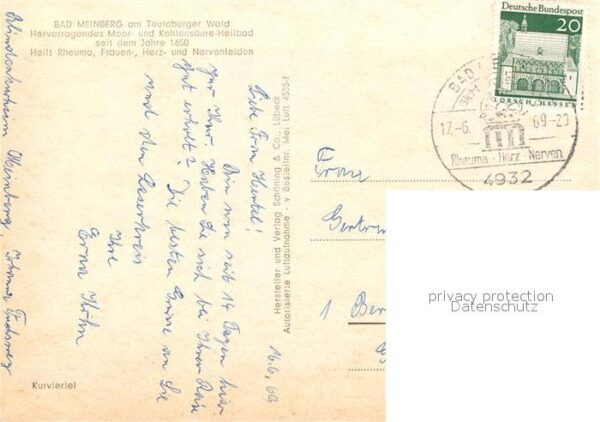 BAD MEINBERG am Teutoburger Wald
Hervorragendes Moor- und Kohlensäure-Heilbad
seit dem Jahre 1650
Heilt Rheuma, Frauen-, Herz- und Nervenleiden
16.6.69
Liebe Frau Henkel!
Bin nun seit 14 Tagen hier
zur Kur. Haben Sie sich bei Ihrer Reise
gut erholt? Die besten Grüße an Sie
und den Leserkreis
Ihre
Erna Höhn
Blindenkurheim Meinberg,
Kurviertel
Hersteller und Verlag Schöning & Co., Lübeck
Autorisierte Luftaufnahme - v Bestellnr. Mei Luft 4555-1
Deutsche Bundespost
20
LORSCH/HESSEN
BAD
17.-6. 69-20
Rheuma · Herz · Nerven
4932
Frau
1 Ber
privacy protection
Datenschutz